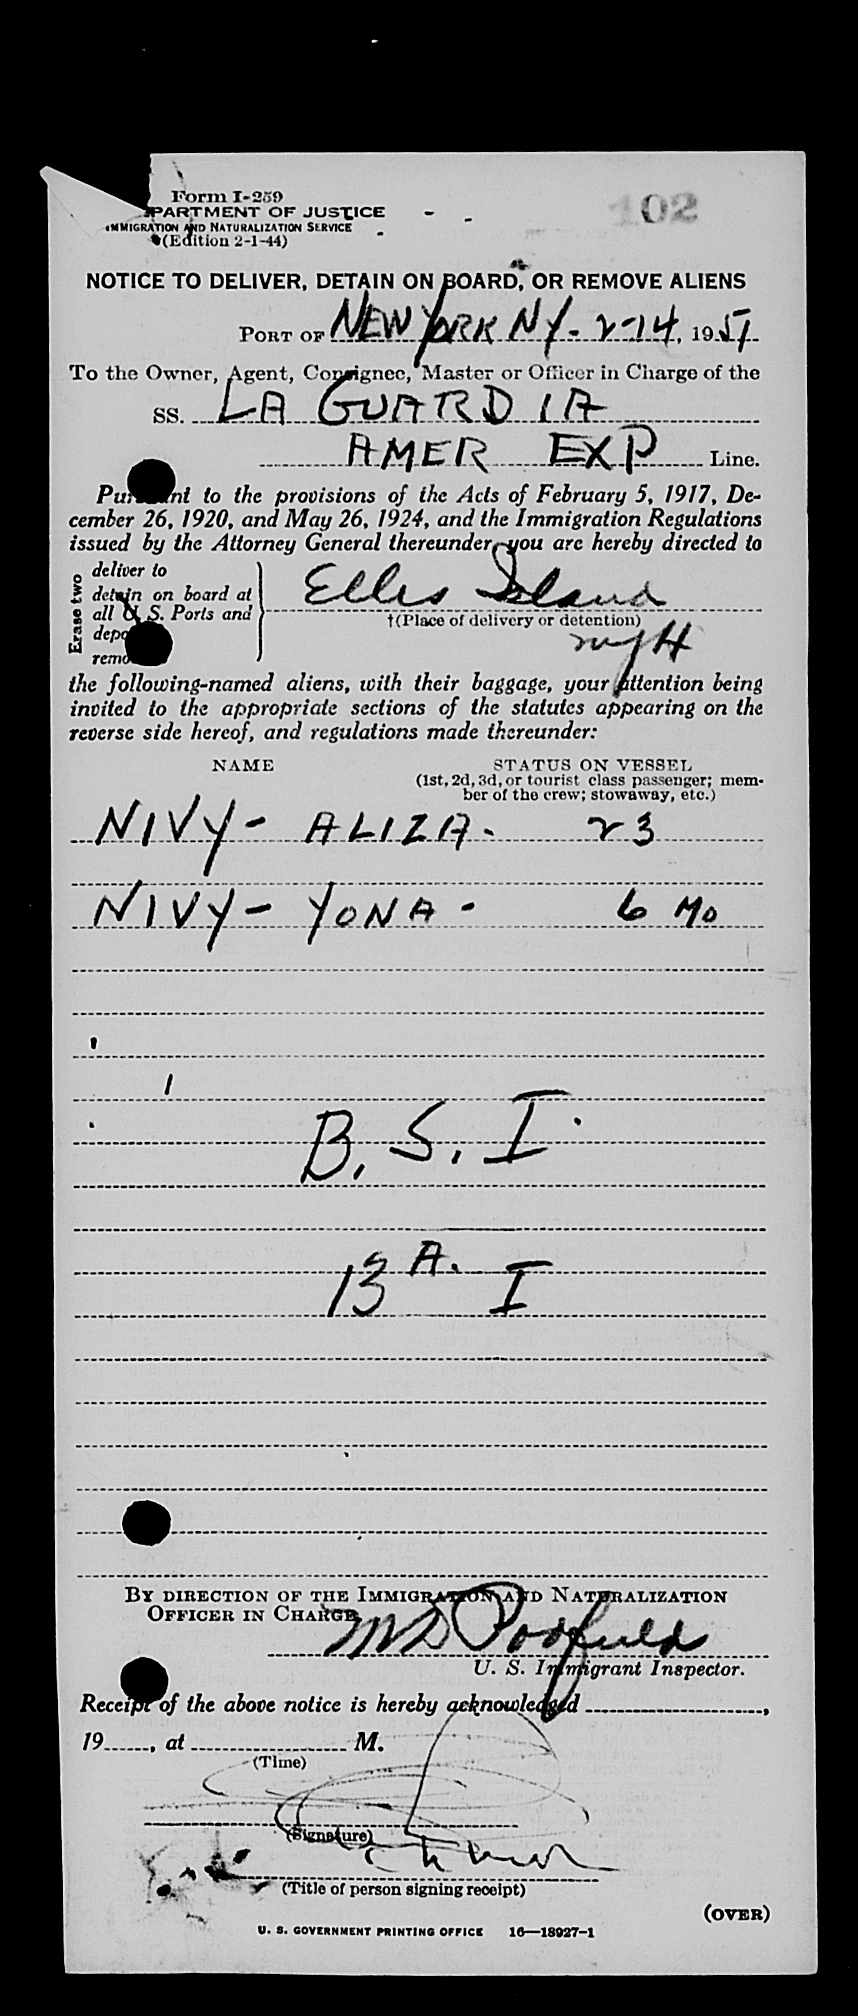 Form I-259
102
PARTMENT OF JUSTICE
IMMIGRATION AND NATURALIZATION SERVICE
(Edition 2-1-44)
NOTICE TO DELIVER, DETAIN ON BOARD, OR REMOVE ALIENS
PORT OF NEW YORK NY - 2-14, 1951
To the Owner, Agent, Consignee, Master or Officer in Charge of the
SS. LA GUARDIA
AMER EXP Line.
Pursuant to the provisions of the Acts of February 5, 1917, De-
cember 26, 1920, and May 26, 1924, and the Immigration Regulations
issued by the Attorney General thereunder you are hereby directed to
Erase two
deliver to
detain on board at
all U. S. Ports and
depo
remo
Ellis Island
†(Place of delivery or detention)
NYH
the following-named aliens, with their baggage, your attention being
invited to the appropriate sections of the statutes appearing on the
reverse side hereof, and regulations made thereunder:
NAME STATUS ON VESSEL
(1st, 2d, 3d, or tourist class passenger; mem-
ber of the crew; stowaway, etc.)
NIVY - ALIZA - 23
NIVY - YONA - 6 Mo
B. S. I.
13 A. I
BY DIRECTION OF THE IMMIGRATION AND NATURALIZATION
OFFICER IN CHARGE
U. S. Immigrant Inspector.
Receipt of the above notice is hereby acknowledged ,
19 , at M.
(Time)
(Signature)
(Title of person signing receipt)
(OVER)
U. S. GOVERNMENT PRINTING OFFICE 16—18927-1